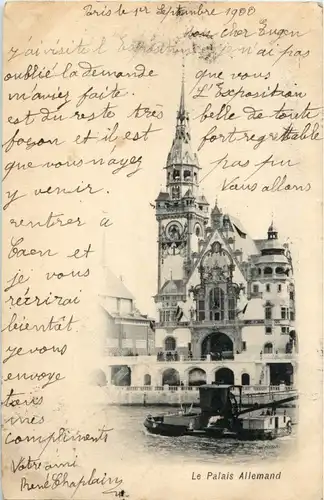 Paris le 1er Septembre 1900
Mon cher Eugen
j'ai visité l'Exposition je n'ai pas
oublié la demande que vous
m'aviez faite. L'Exposition
est du reste très belle de toute
façon et il est fort regrettable
que vous n'ayez pas pu
y venir. Nous allons
rentrer à
Caen et
je vous
récrirai
bientôt.
je vous
envoye
mes
compliments
Votre ami
René Chaplain
Le Palais Allemand